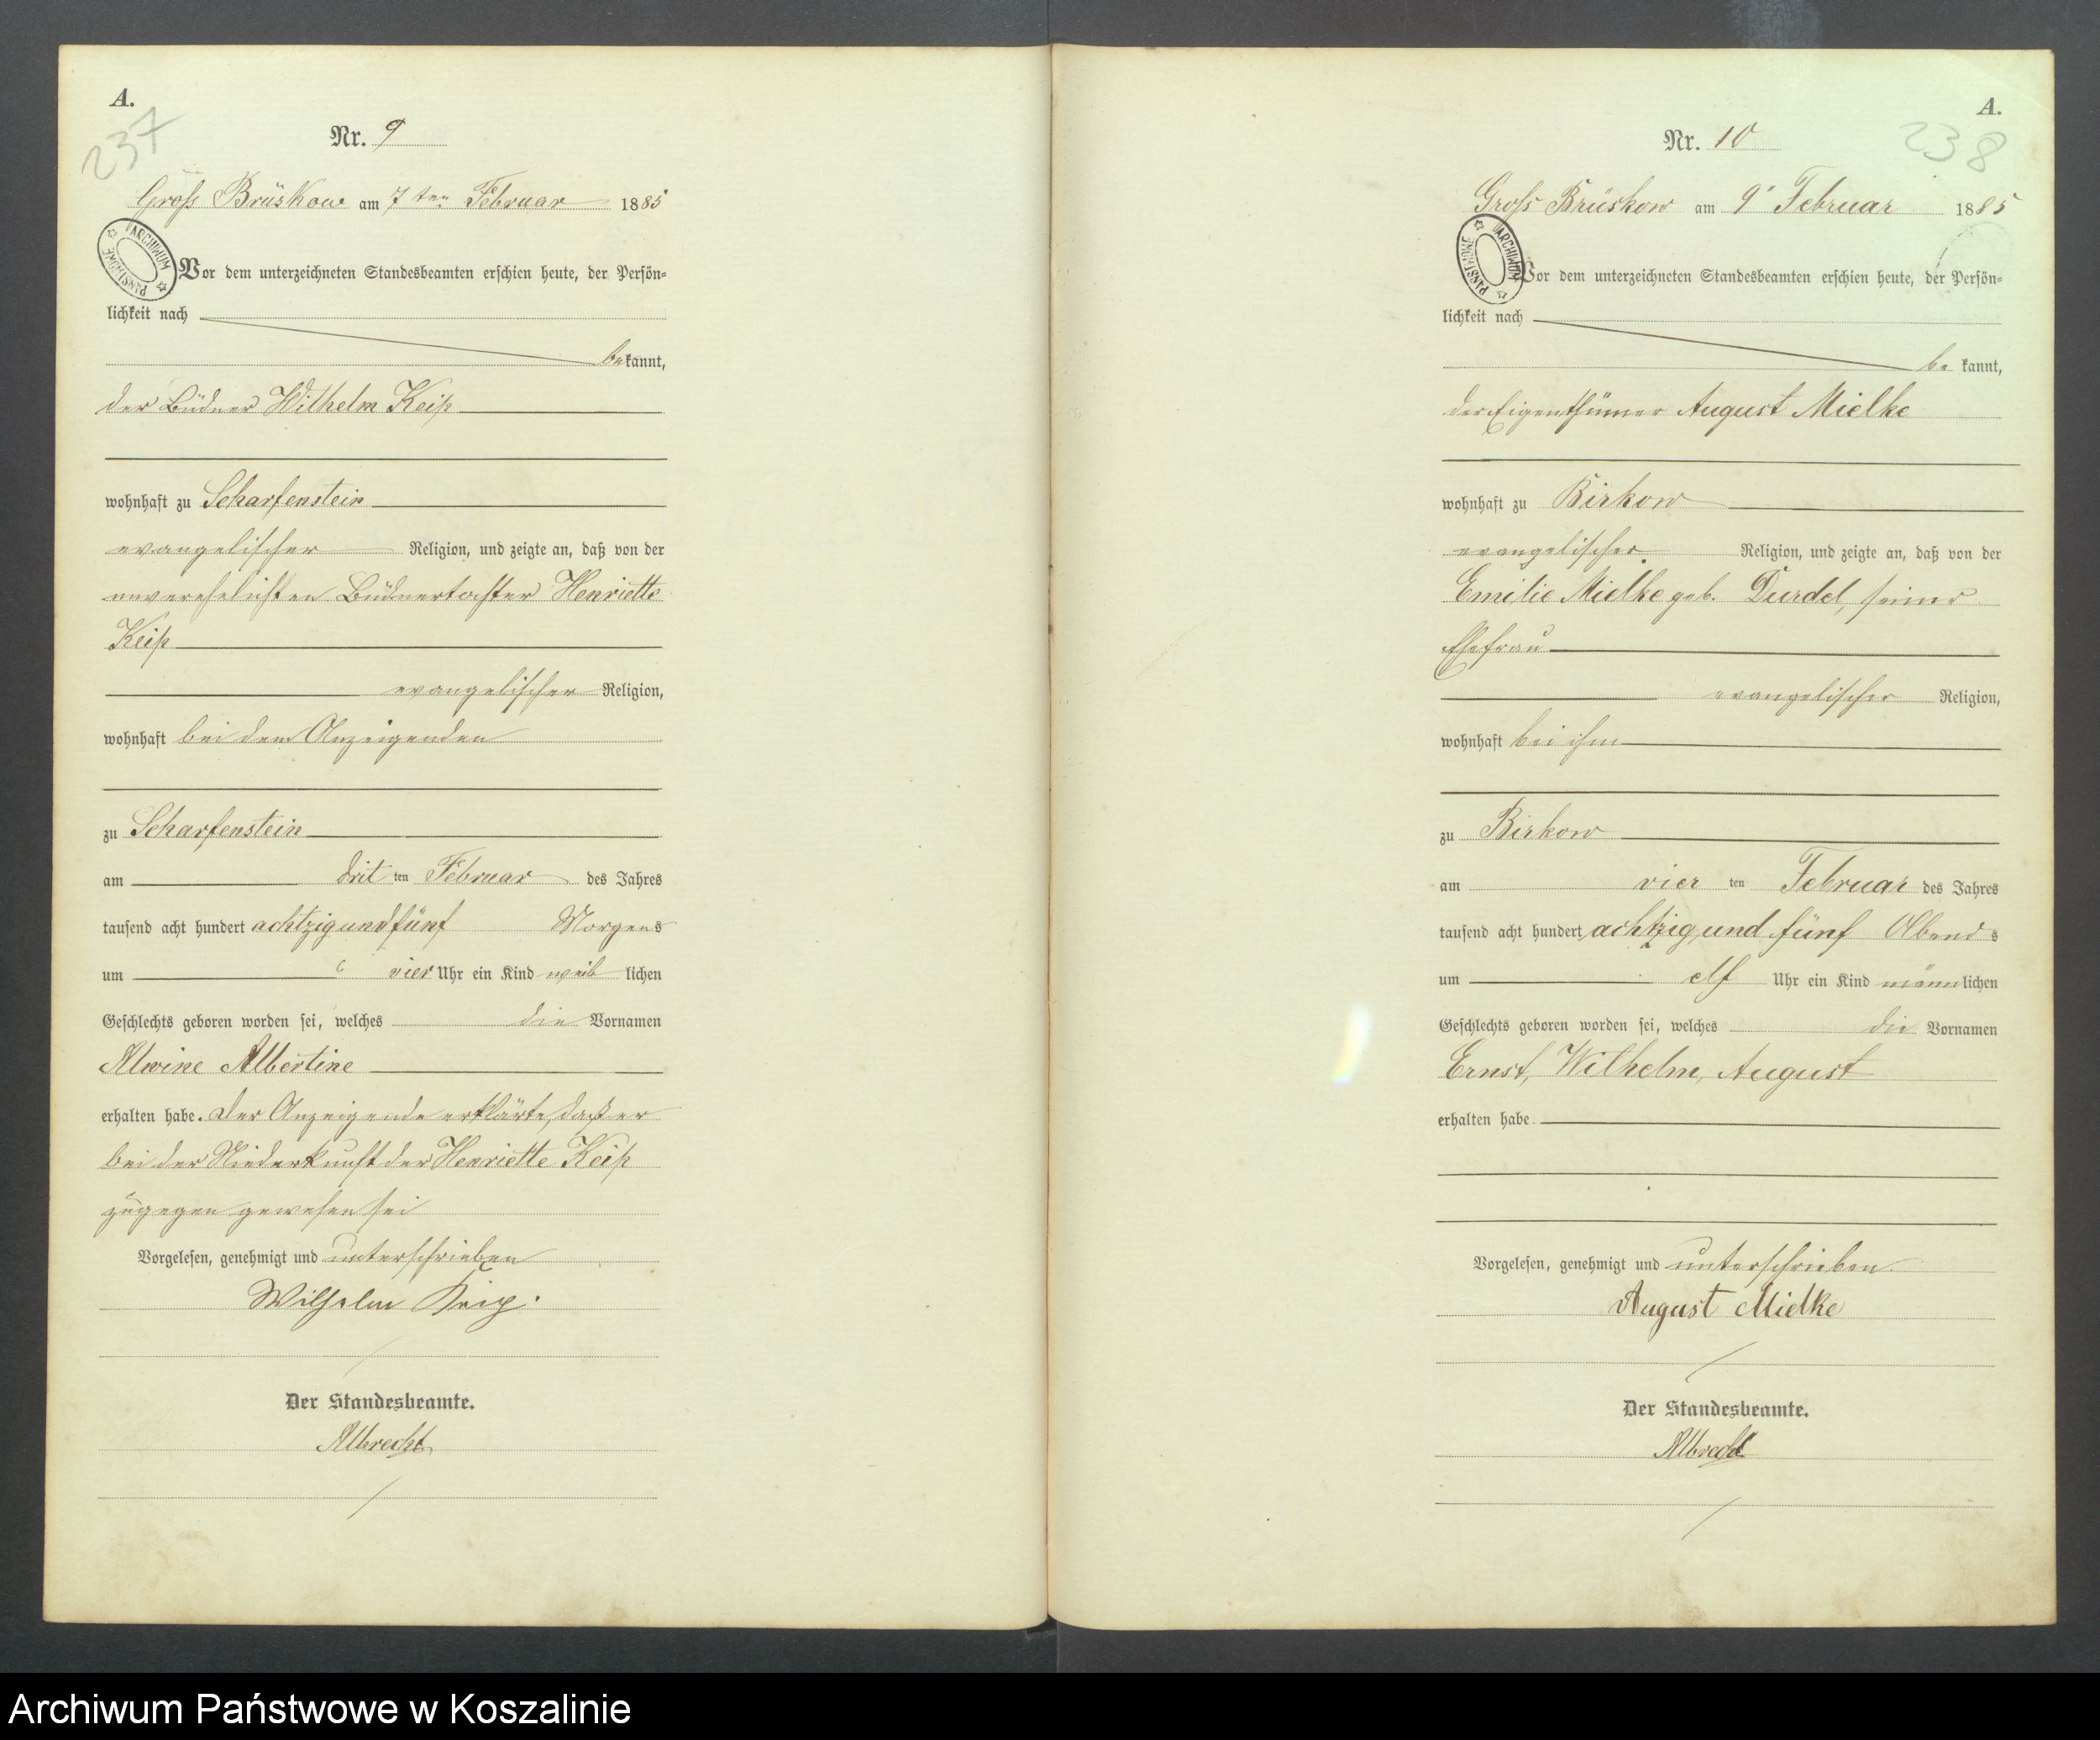 A.
237
Nr. 9
Gross Brüskow am 7ten Februar 1885
Vor dem unterzeichneten Standesbeamten erschien heute, der Persön-
lichkeit nach
bekannt,
der Büdner Wilhelm Keip
wohnhaft zu Scharfenstein
evangelischer Religion, und zeigte an, daß von der
unverehelichten Büdnertochter Henriette
Keip
evangelischer Religion,
wohnhaft bei dem Anzeigenden
zu Scharfenstein
am drit ten Februar des Jahres
tausend acht hundert achtzig und fünf Morgens
um vier Uhr ein Kind weib lichen
Geschlechts geboren worden sei, welches die Vornamen
Alwine Albertine
erhalten habe. Der Anzeigende erklärte, daß er
bei der Niederkunft der Henriette Keip
zugegen gewesen sei
Vorgelesen, genehmigt und unterschrieben
Wilhelm Keip.
Der Standesbeamte.
Albrecht
A.
238
Nr. 10
Gross Brüskow am 9' Februar 1885
Vor dem unterzeichneten Standesbeamten erschien heute, der Persön-
lichkeit nach
be kannt,
der Eigenthümer August Mielke
wohnhaft zu Birkow
evangelischer Religion, und zeigte an, daß von der
Emilie Mielke geb. Durdel, seiner
Ehefrau
evangelischer Religion,
wohnhaft bei ihm
zu Birkow
am vier ten Februar des Jahres
tausend acht hundert achtzig und fünf Abends
um elf Uhr ein Kind männlichen
Geschlechts geboren worden sei, welches die Vornamen
Ernst, Wilhelm, August
erhalten habe.
Vorgelesen, genehmigt und unterschrieben.
August Mielke
Der Standesbeamte.
Albrecht
ARCHIWUM PAŃSTWOWE
ARCHIWUM PAŃSTWOWE
Archiwum Państwowe w Koszalinie